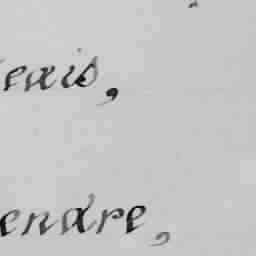 eais,
endre,